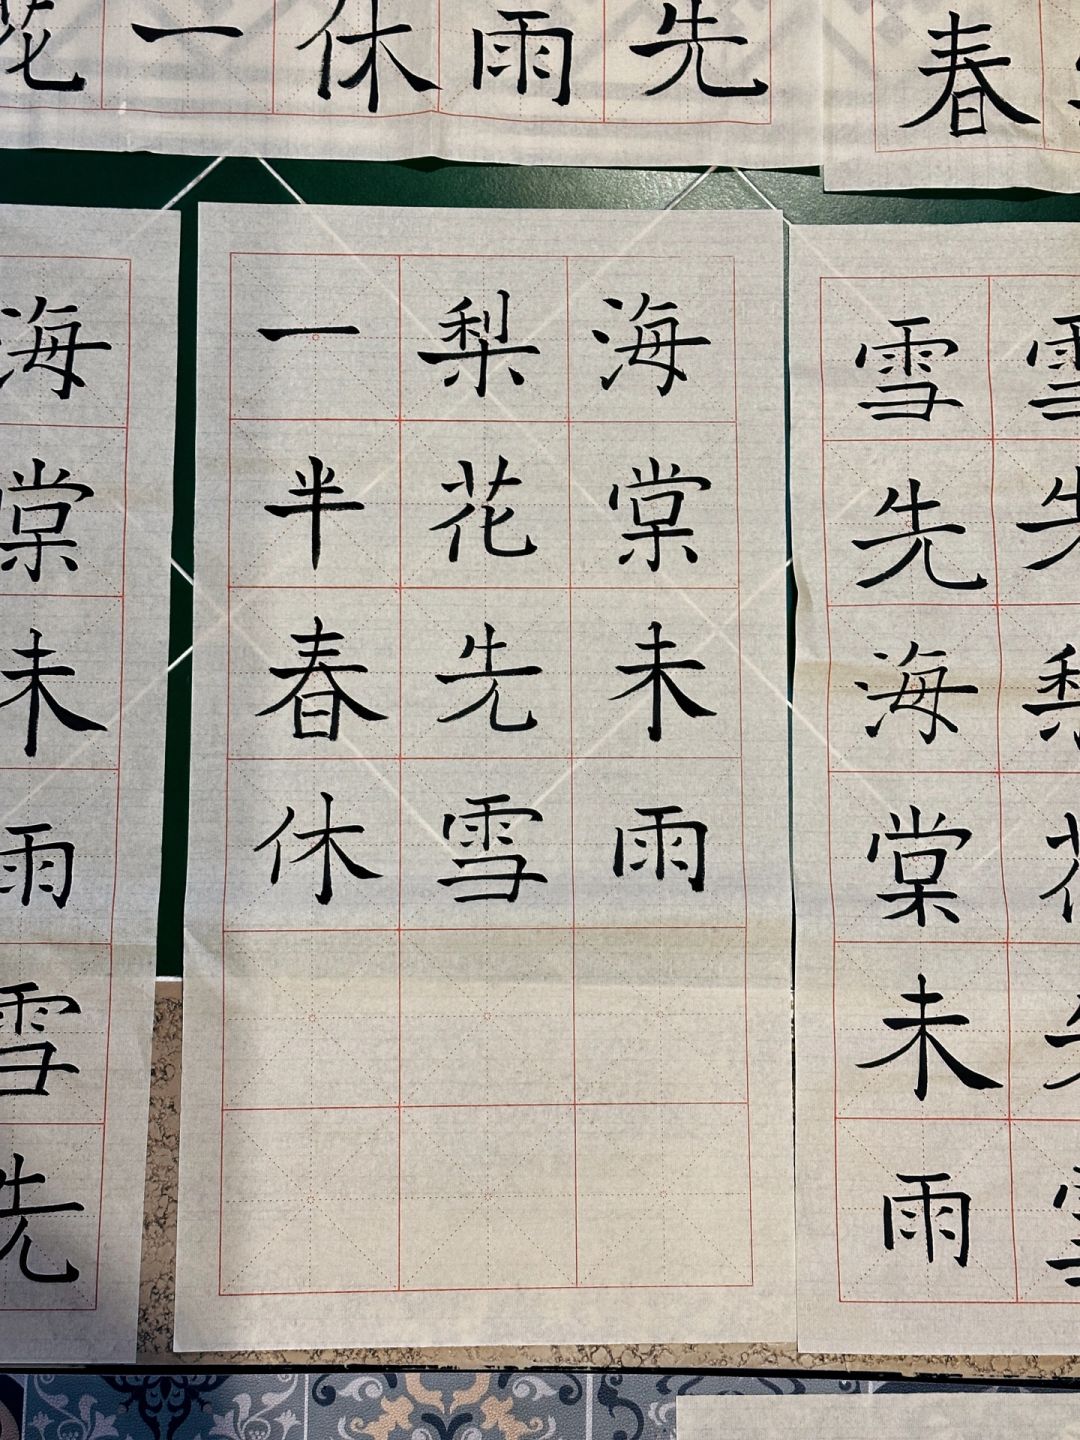 花一休雨先
春
海棠未雨雪先
海棠未雨
梨花先雪
一半春休
雪先梨花先雪
雪先海棠未雨